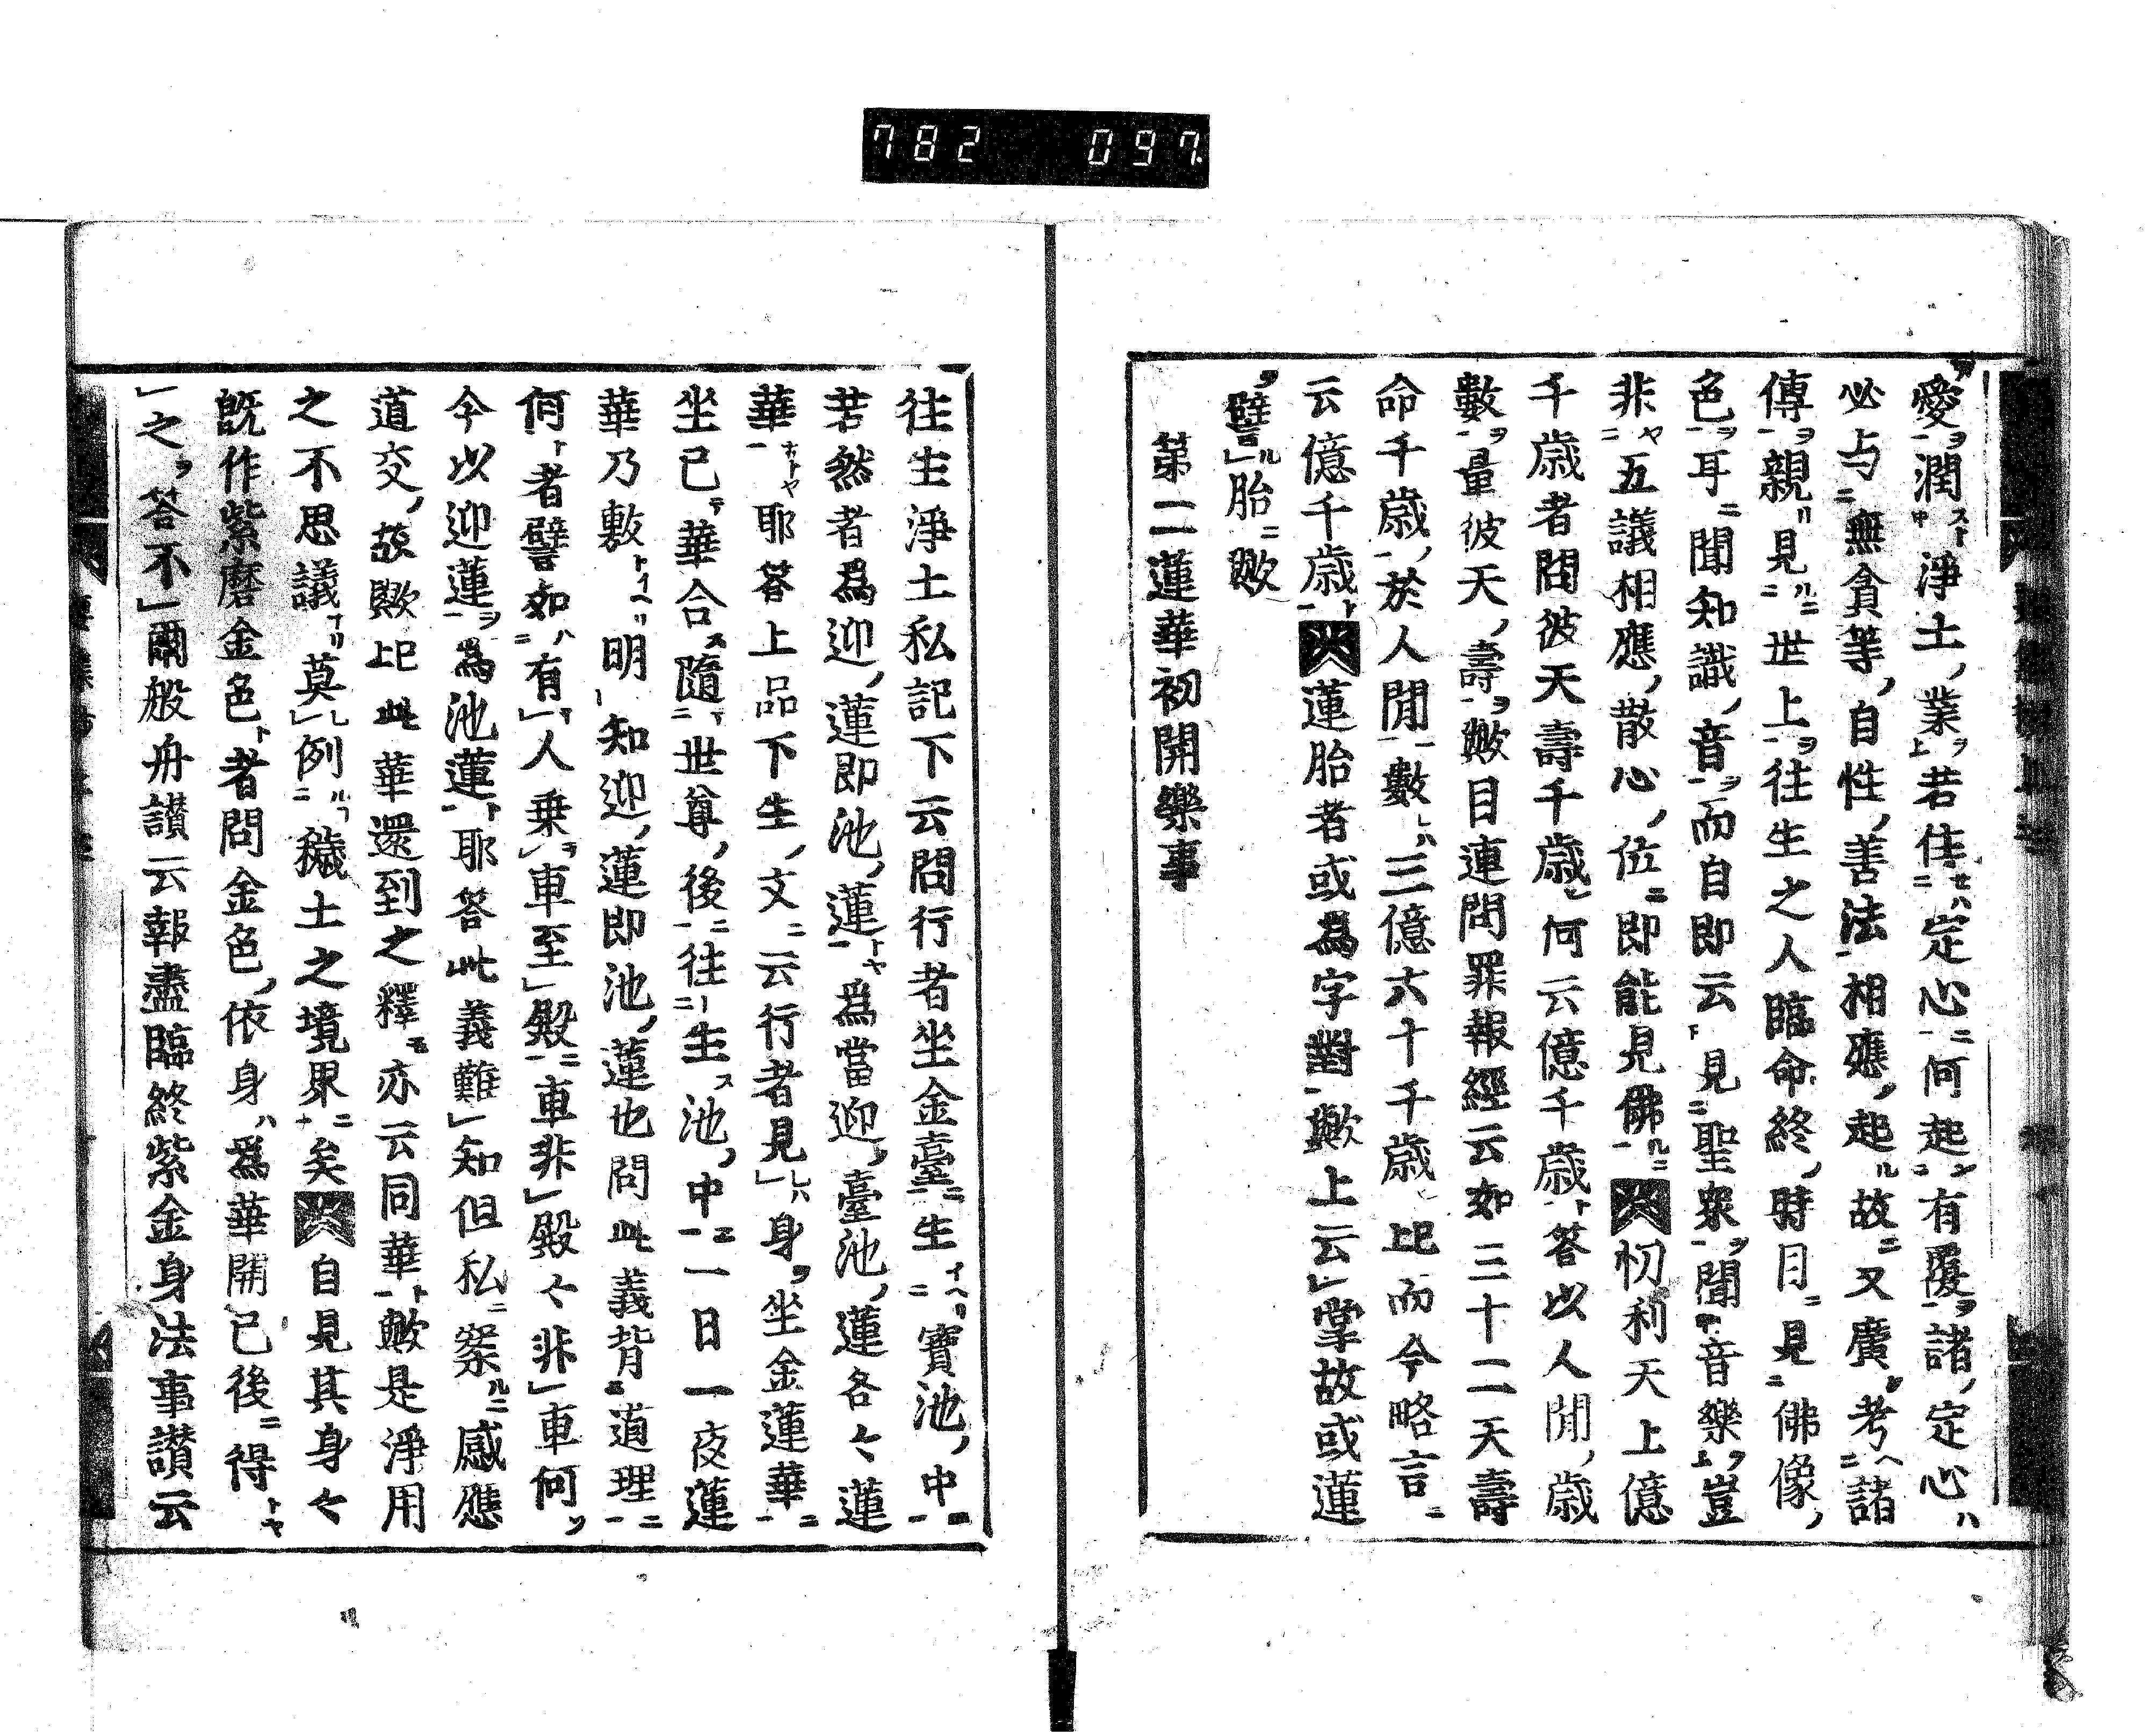 782 097
愛潤淨土業若住定心何起有覆諸定心
必与無貪等自性善法相應起故又廣考諸
傳親見世上往生之人臨命終時目見佛像
色耳聞知識音而自即云見聖衆聞音樂豈
非五識相應散心位即能見佛 忉利天上億
千歳者問彼天壽千歳何云億千歳答以人間歳
數量彼天壽歟目連問罪報經云如三十二天壽
命千歳於人間數三億六十千歳比而今略言
云億千歳 蓮胎者或爲字對歟上云掌故或蓮
譬胎歟
第二蓮華初開樂事
往生淨土私記下云問行者坐金臺生寶池中
若然者爲迎蓮即池蓮爲當迎臺池蓮各々蓮
華耶答上品下生文云行者見身坐金蓮華
坐已華合隨世尊後往生池中一日一夜蓮
華乃敷明知迎蓮即池蓮也問此義背道理
何者譬如有人乗車至殿車非殿々非車何
今以迎蓮爲池蓮耶答此義難知但私案感應
道交故歟比此華還到之釋亦云同華歟是淨用
之不思議莫例穢土之境界矣 自見其身々
既作紫磨金色者問金色依身爲華開已後得
之答不爾般舟讃云報盡臨終紫金身法事讃云